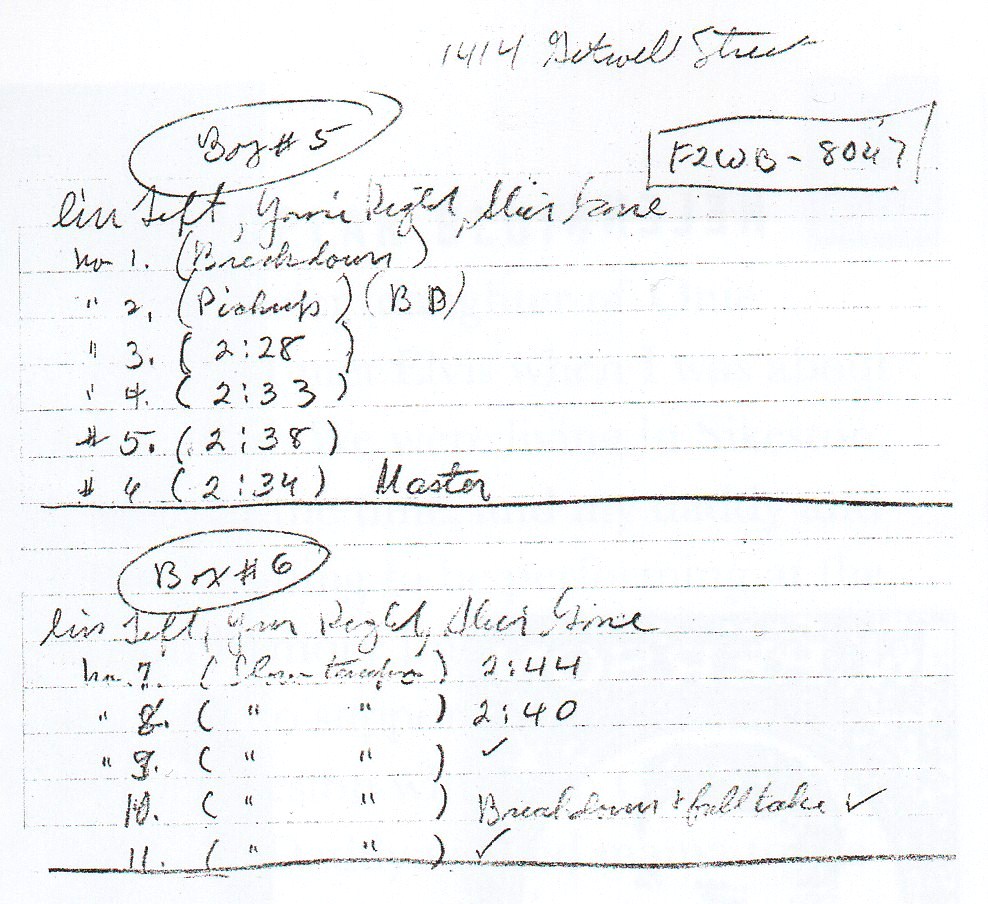 1414 Getwell Street
Box # 5
F2WB - 8047
I'm Left, You're Right, She's Gone
no 1. (Breakdown)
" 2. (Pickups) (B B)
" 3. ( 2:28 )
" 4. ( 2:33 )
# 5. ( 2:38 )
# 6 ( 2:34 ) Master
Box # 6
I'm Left, Your Right, She's Gone
no. 7. ( Slow tempo ) 2:44
" 8. ( " " ) 2:40
" 9. ( " " ) ✓
10. ( " " ) Breakdown & full take ✓
11. ( " " ) ✓